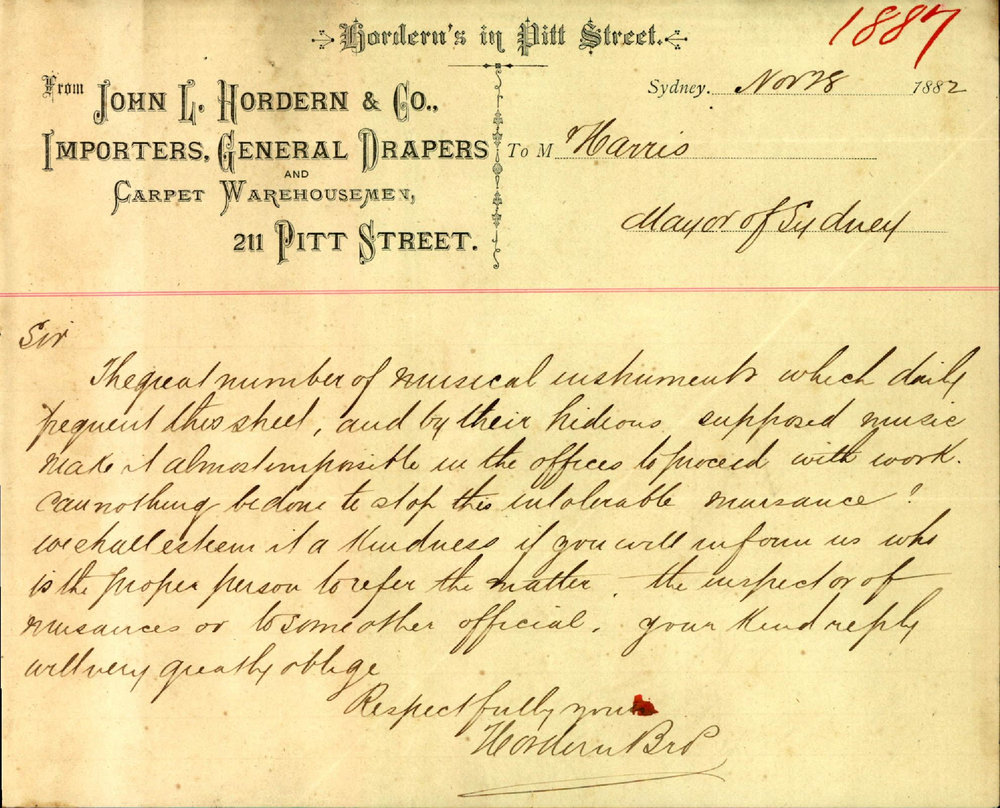 Hordern's in Pitt Street.
1887
From
Sydney. Nov 28 1882
JOHN L. HORDERN & CO.,
IMPORTERS, GENERAL DRAPERS
AND
CARPET WAREHOUSEMEN,
211 PITT STREET.
To M Harris
Mayor of Sydney
Sir
The great number of musical instruments which daily
frequent this street, and by their hideous supposed music
make it almost impossible in the offices to proceed with work.
Can nothing be done to stop this intolerable nuisance?
we shall esteem it a kindness if you will inform us who
is the proper person to refer the matter, the inspector of
nuisances or to some other official. your kind reply
will very greatly oblige
Respectfully yours
Hordern Bros